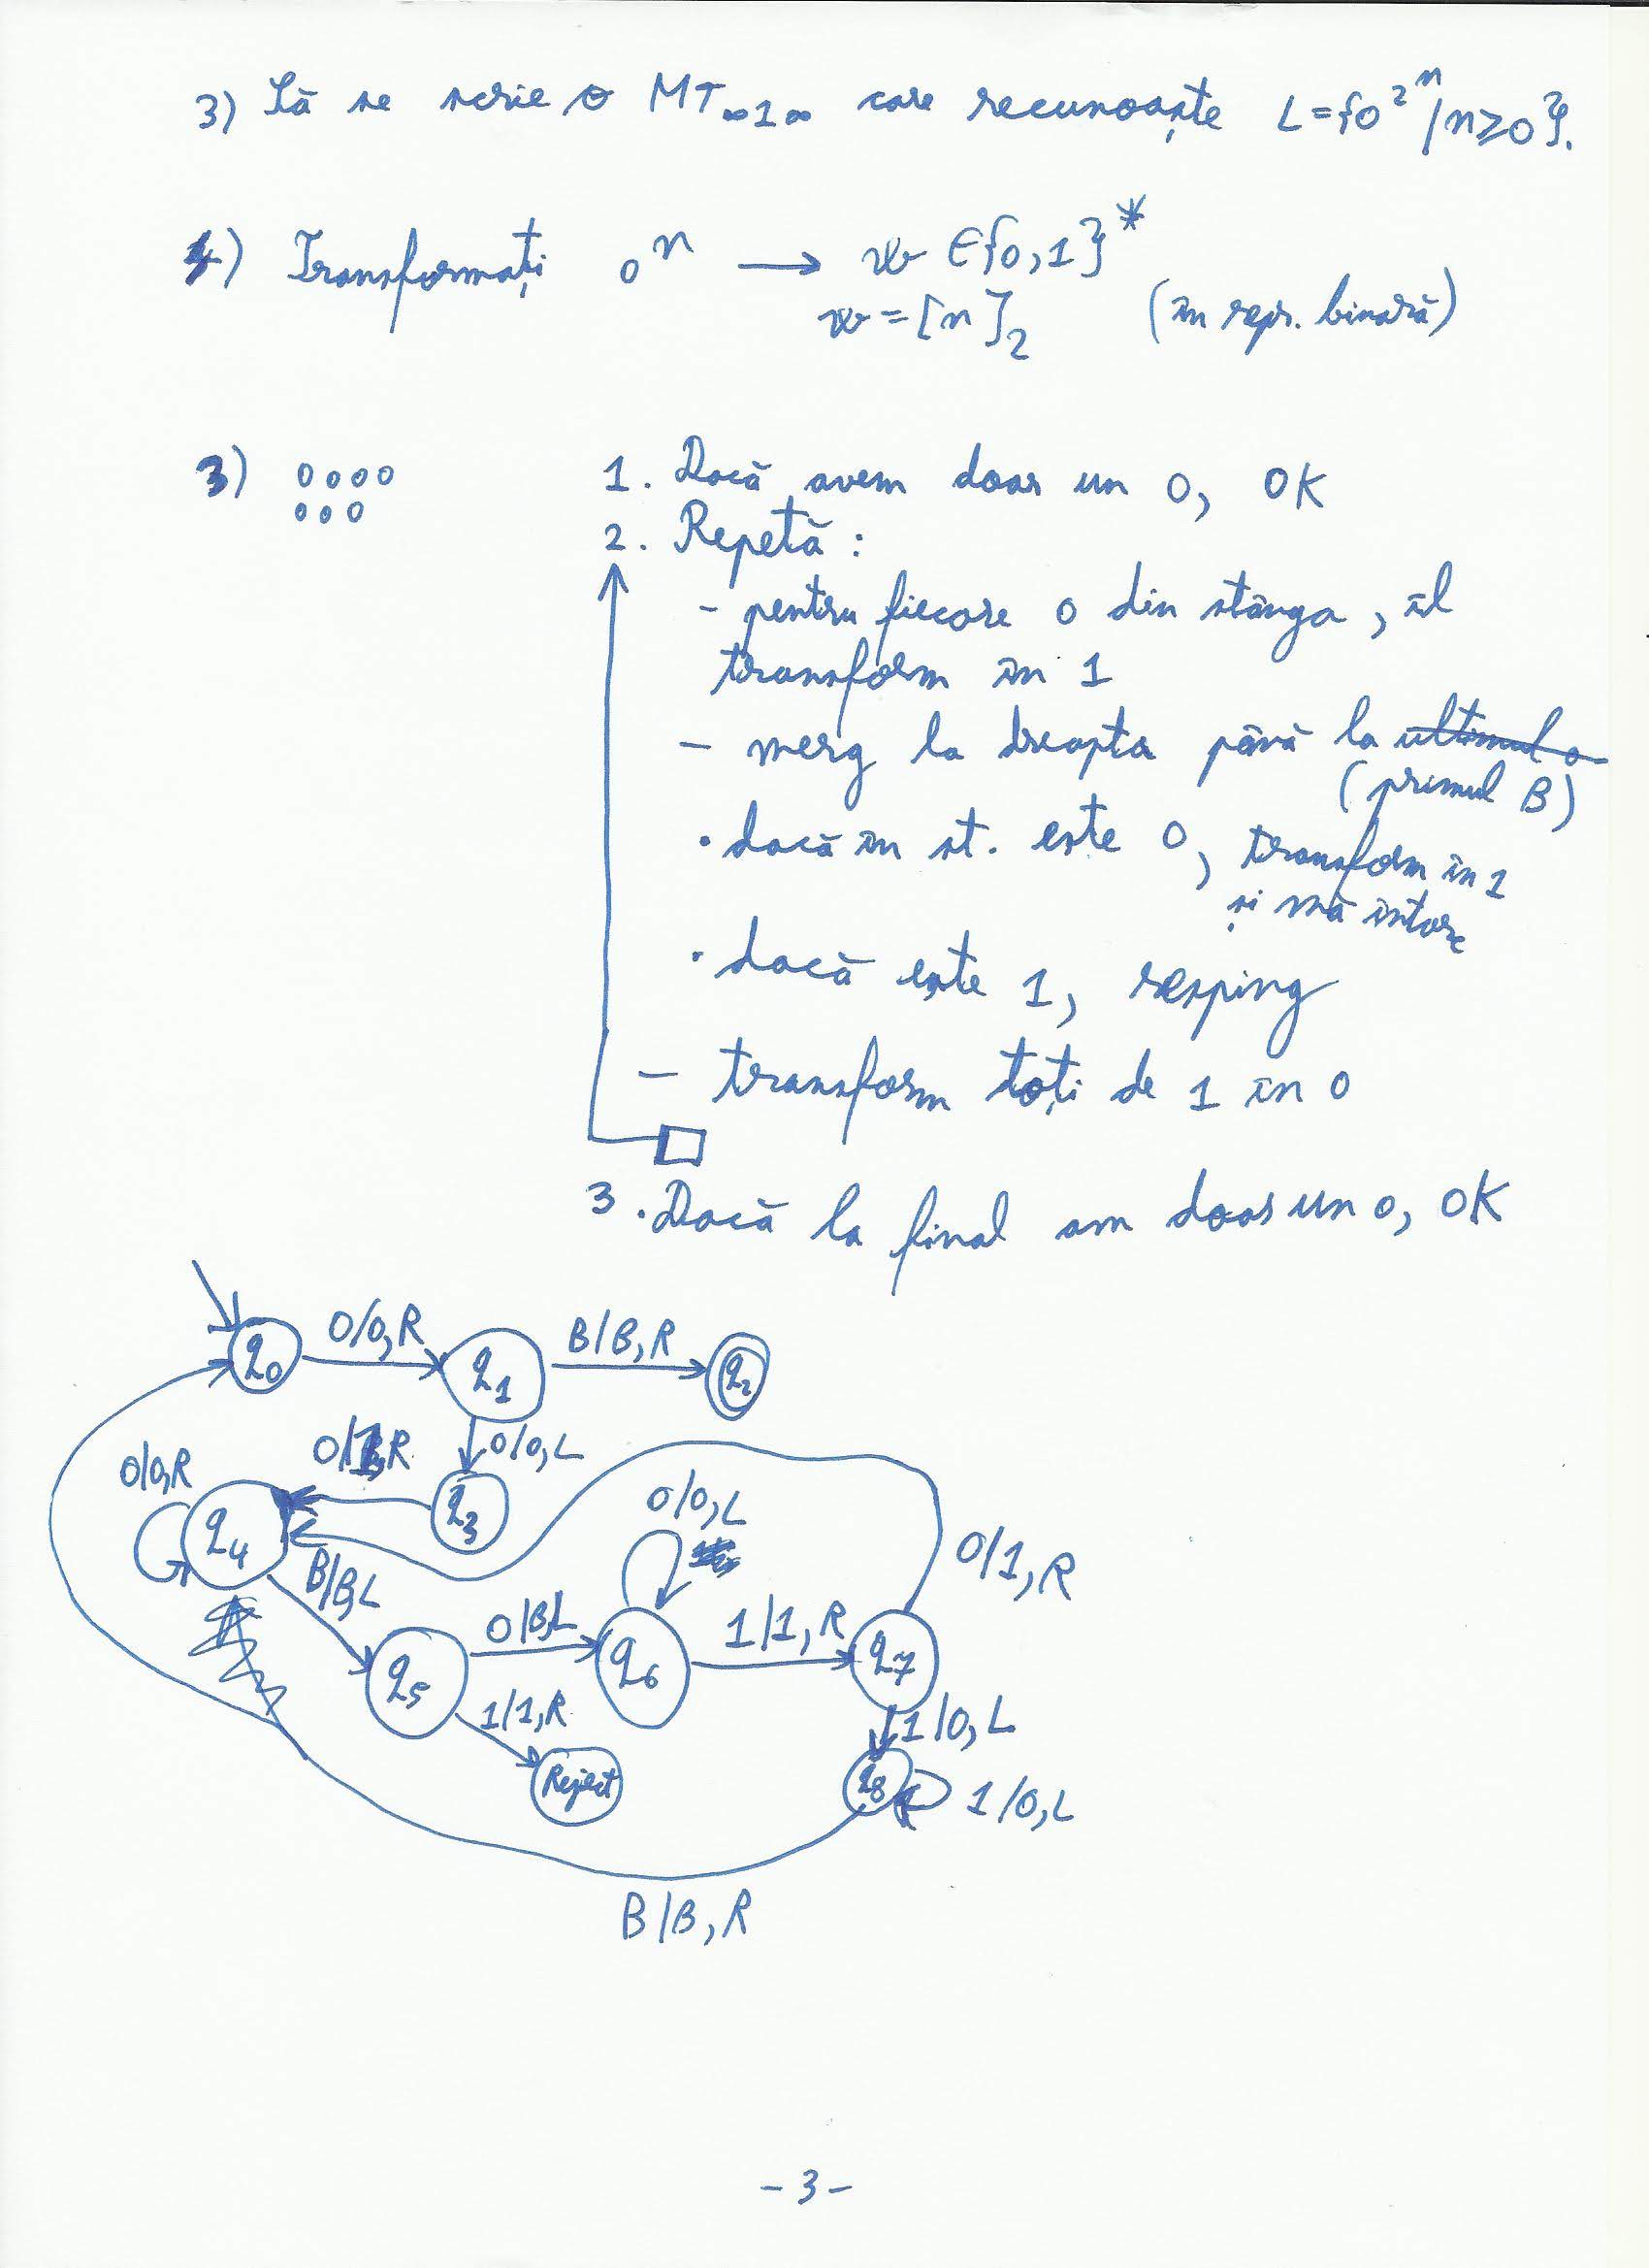 3) Să se scrie o MT∞1∞ care recunoaște L={0^2^n/n≥0}.
4) Transformați 0^n → w ∈{0,1}*
w=[n]2 (în repr. binară)
3) 0000
000
1. Dacă avem doar un 0, OK
2. Repetă:
- pentru fiecare 0 din stânga, îl
transform în 1
- merg la dreapta până la ultimul 0
(primul B)
• dacă în st. este 0, transform în 1
și mă întorc
• dacă este 1, resping
- transform toți de 1 în 0
3. Dacă la final am doar un 0, OK
q0 0/0,R q1 B/B,R q2
0/0,R 0/1,R 0/0,L
q4 q3 0/0,L
B/B,L 0/1,R
q5 0/B,L q6 1/1,R q7
1/1,R 1/0,L
Reject q8 1/0,L
B/B,R
-3-